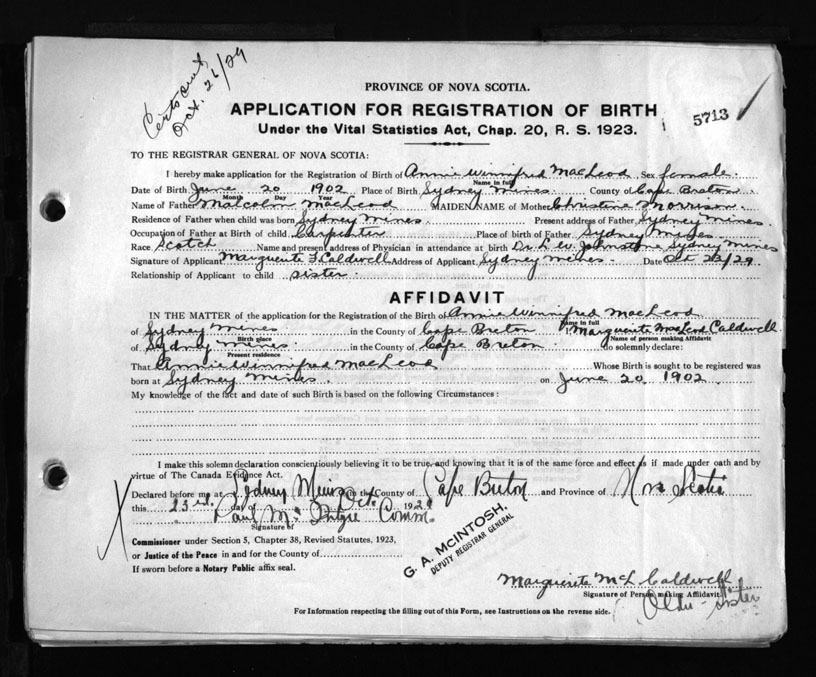 Certs out
Oct. 26/29
PROVINCE OF NOVA SCOTIA.
APPLICATION FOR REGISTRATION OF BIRTH
5713
Under the Vital Statistics Act, Chap. 20, R. S. 1923.
TO THE REGISTRAR GENERAL OF NOVA SCOTIA:
I hereby make application for the Registration of Birth of Annie Winnifred MacLeod Sex female.
Name in full
Date of Birth June 20 1902 Place of Birth Sydney Mines. County of Cape Breton
Month Day Year
Name of Father Malcolm MacLeod MAIDEN NAME of Mother Christine Morrison
Residence of Father when child was born Sydney Mines. Present address of Father Sydney Mines.
Occupation of Father at Birth of child Carpenter Place of birth of Father Sydney Mines.
Race Scotch Name and present address of Physician in attendance at birth Dr. L. W. Johnstone Sydney Mines
Signature of Applicant Marguerite Caldwell Address of Applicant Sydney Mines. Date Oct 23/29
Relationship of Applicant to child sister.
AFFIDAVIT
IN THE MATTER of the application for the Registration of the Birth of Annie Winnifred MacLeod
Name in full
of Sydney Mines in the County of Cape Breton I Marguerite MacLeod Caldwell
Birth place Name of person making Affidavit
of Sydney Mines. in the County of Cape Breton do solemnly declare:
Present residence
That Annie Winnifred MacLeod Whose Birth is sought to be registered was
born at Sydney Mines. on June 20 1902.
My knowledge of the fact and date of such Birth is based on the following Circumstances:
I make this solemn declaration conscientiously believing it to be true, and knowing that it is of the same force and effect as if made under oath and by
virtue of The Canada Evidence Act.
Declared before me at Sydney Mines in the County of Cape Breton and Province of Nova Scotia
this 23rd Oct 1929
Comm.
Signature of
Commissioner under Section 5, Chapter 38, Revised Statutes, 1923,
or Justice of the Peace in and for the County of
If sworn before a Notary Public affix seal.
G. A. McINTOSH,
DEPUTY REGISTRAR GENERAL
Marguerite McL Caldwell
Signature of Person making Affidavit.
Older sister
For Information respecting the filling out of this Form, see Instructions on the reverse side.